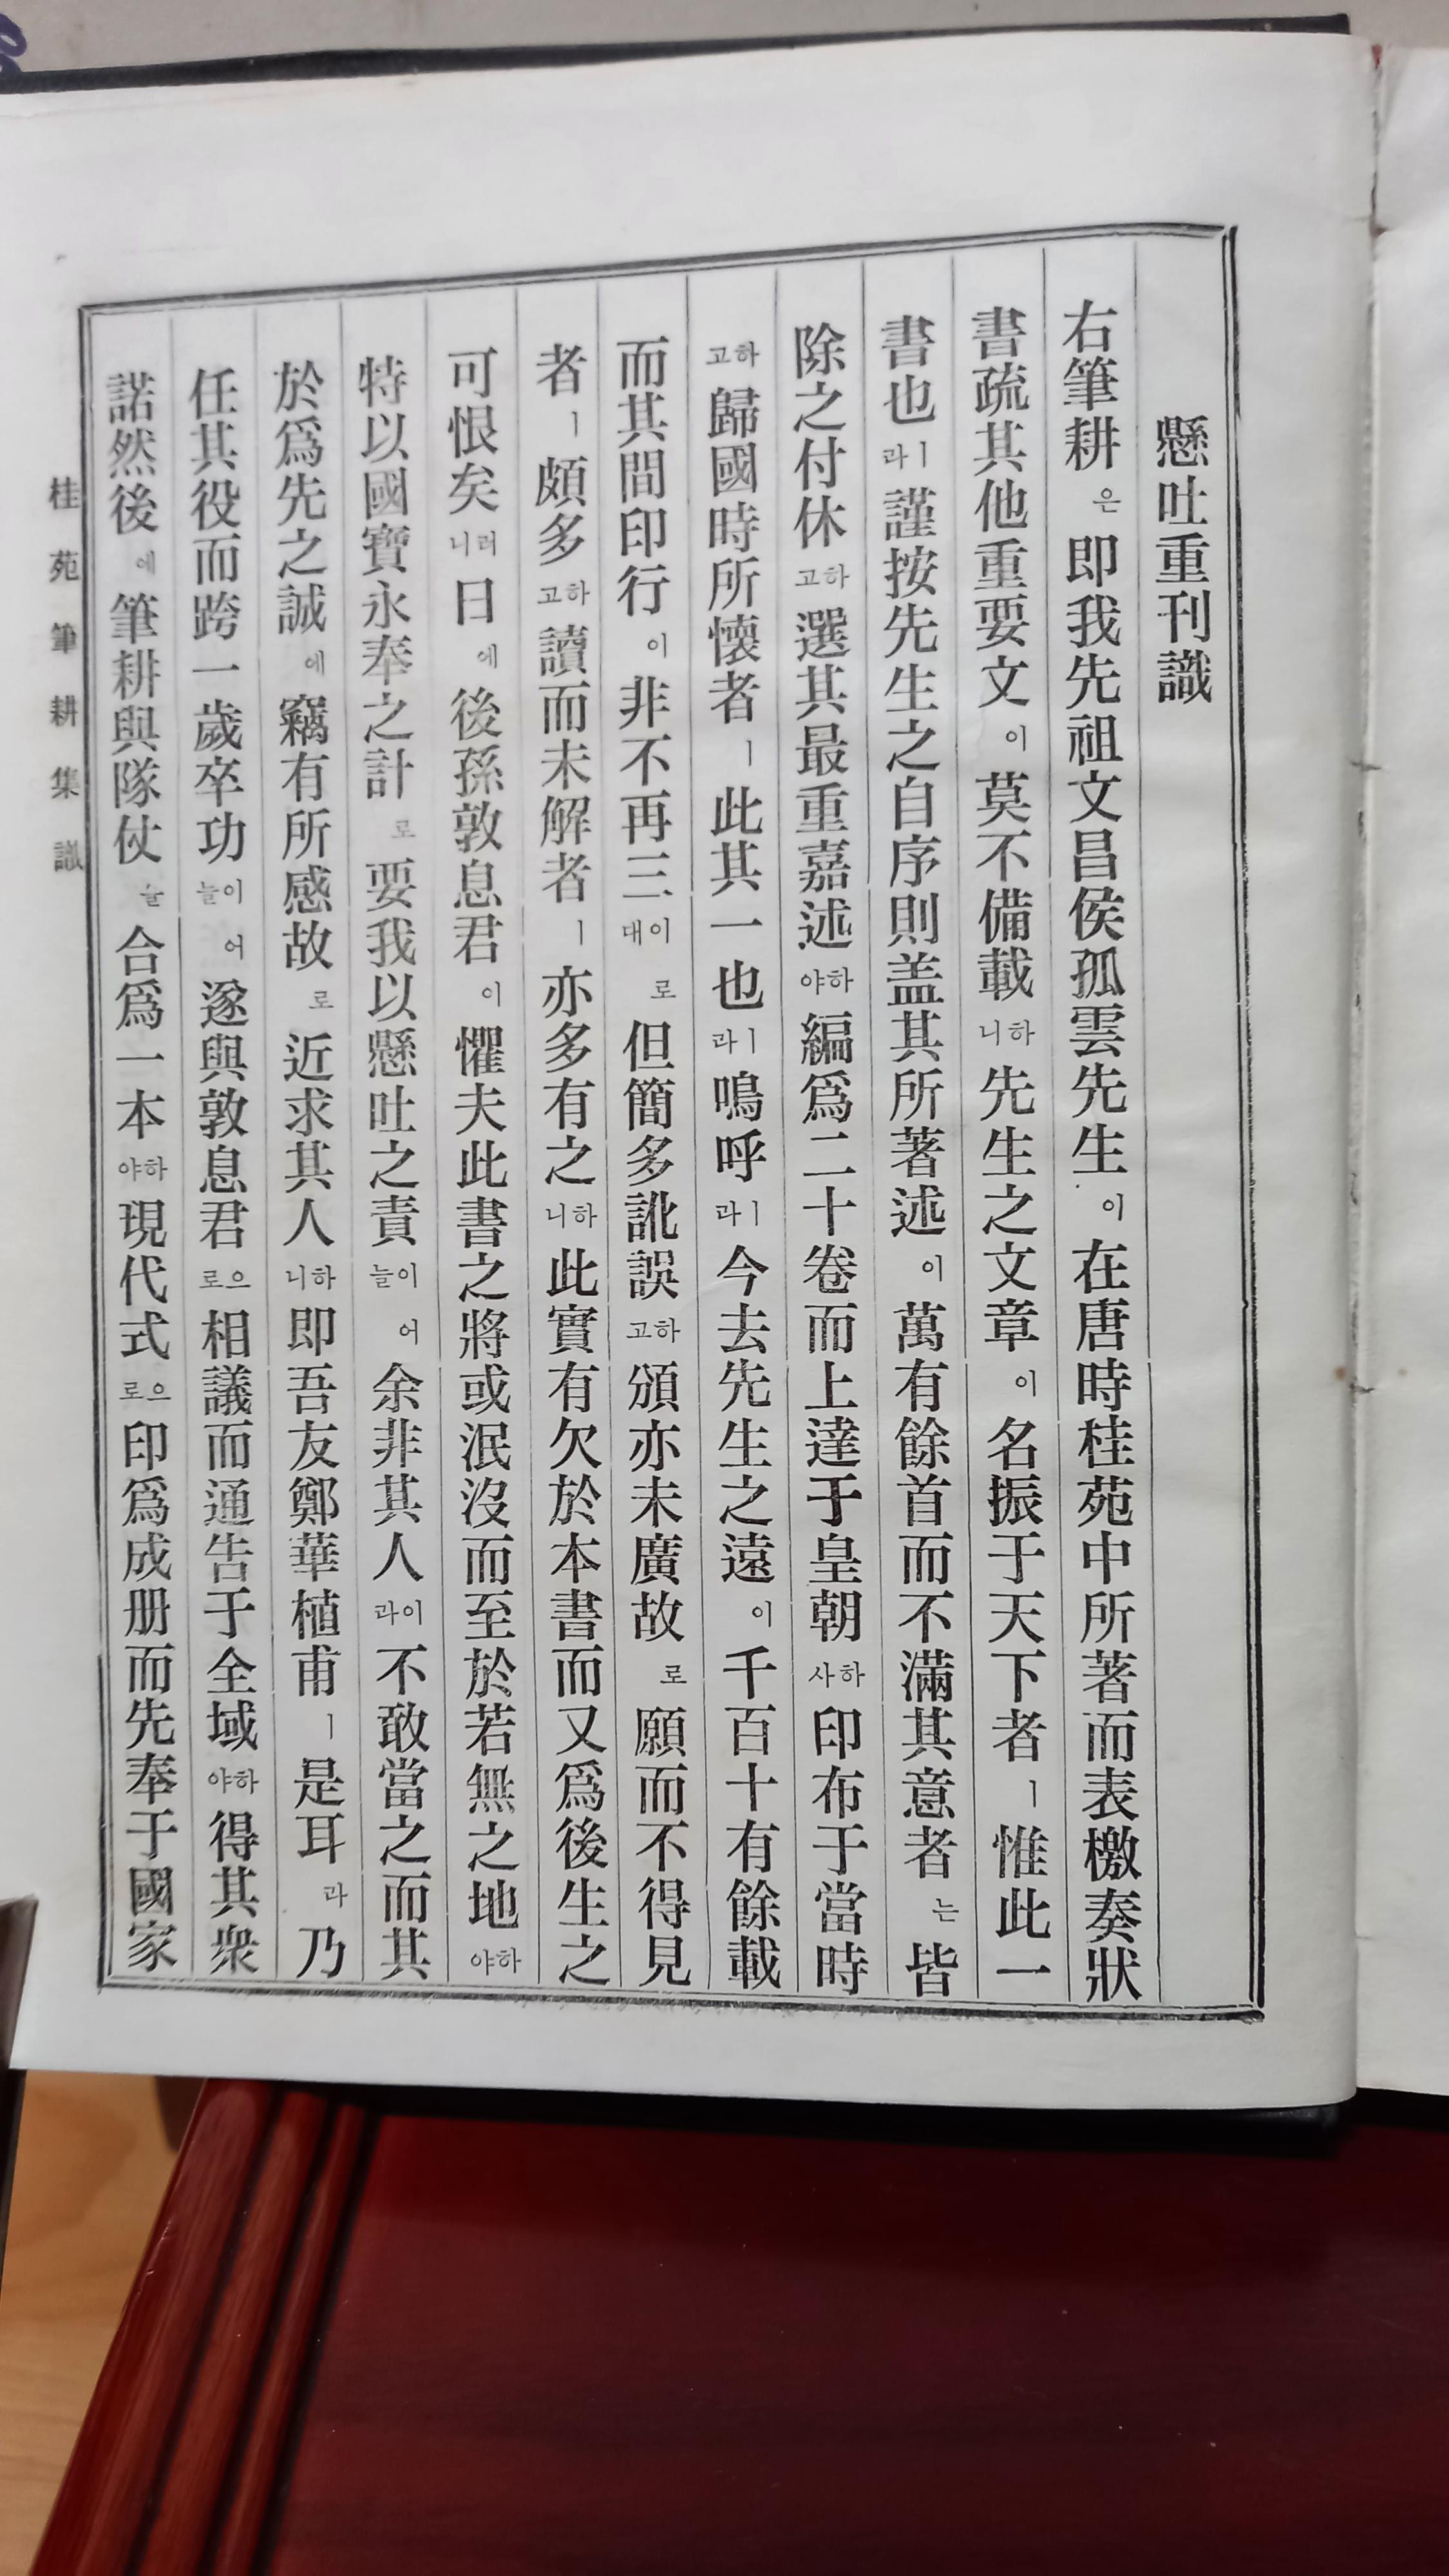 懸吐重刊識
右筆耕은即我先祖文昌侯孤雲先生이在唐時桂苑中所著而表檄奏狀
書疏其他重要文이莫不備載하니先生之文章이名振于天下者ㅣ惟此一
書也ㅣ라謹按先生之自序則盖其所著述이萬有餘首而不滿其意者는皆
除之付休하고選其最重嘉述하야編爲二十卷而上達于皇朝하사印布于當時
하고歸國時所懷者ㅣ此其一也ㅣ라鳴呼ㅣ라今去先生之遠이千百十有餘載
而其間印行이非不再三이대로但簡多訛誤하고頒亦未廣故로願而不得見
者ㅣ頗多하고讀而未解者ㅣ亦多有之하니此實有欠於本書而又爲後生之
可恨矣러니日에後孫敦息君이懼夫此書之將或泯沒而至於若無之地하야
特以國寶永奉之計로要我以懸吐之責이늘어余非其人이라不敢當之而其
於爲先之誠에竊有所感故로近求其人하니即吾友鄭華植甫ㅣ是耳라乃
任其役而跨一歲卒功이늘어遂與敦息君으로相議而通告于全域하야得其衆
諾然後에筆耕與隊仗을合爲一本하야現代式으로印爲成册而先奉于國家
桂苑筆耕集 識